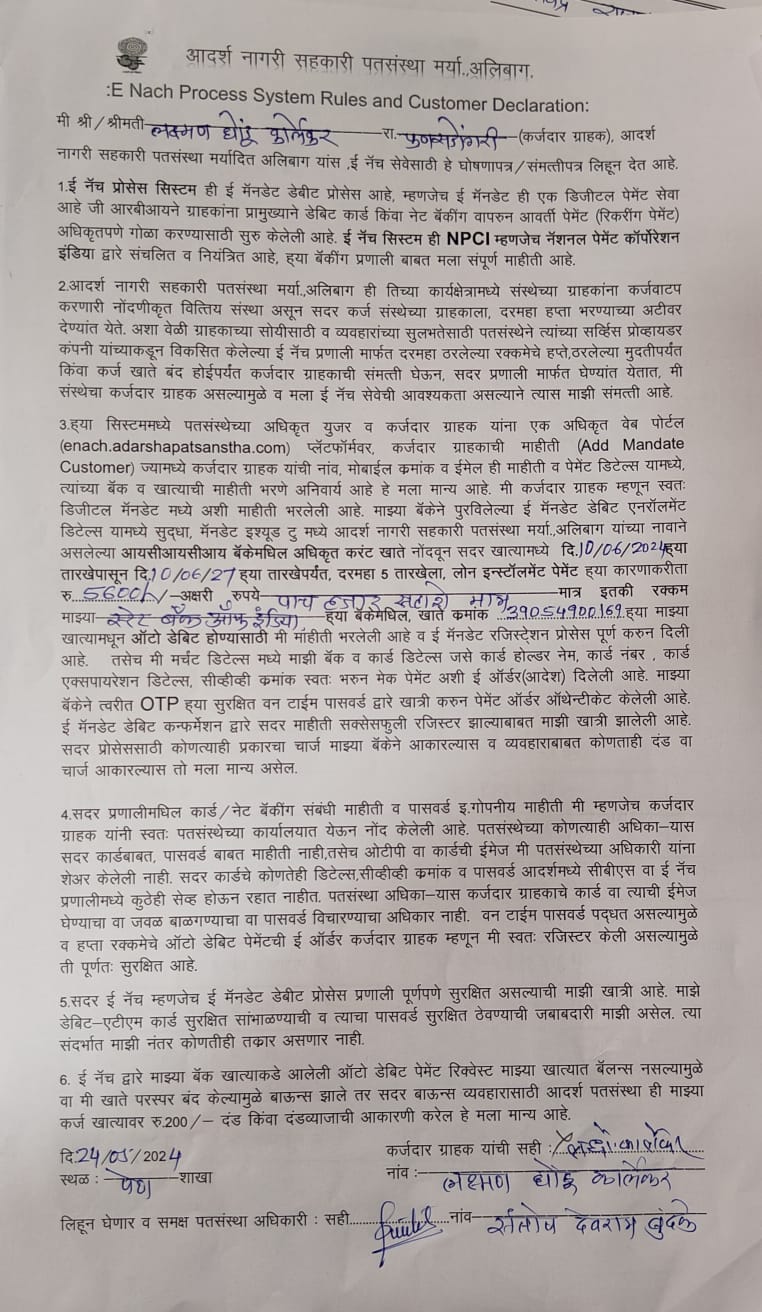 आदर्श नागरी सहकारी पतसंस्था मर्या.,अलिबाग.
:E Nach Process System Rules and Customer Declaration:
मी श्री/श्रीमती लक्ष्मण धोंडू कार्लेकर रा. फणसडोंगरी (कर्जदार ग्राहक), आदर्श
नागरी सहकारी पतसंस्था मर्यादित अलिबाग यांस ,ई नॅच सेवेसाठी हे घोषणापत्र/संमत्तीपत्र लिहून देत आहे.
1.ई नॅच प्रोसेस सिस्टम ही ई मॅनडेट डेबीट प्रोसेस आहे, म्हणजेच ई मॅनडेट ही एक डिजीटल पेमेंट सेवा
आहे जी आरबीआयने ग्राहकांना प्रामुख्याने डेबिट कार्ड किंवा नेट बॅकींग वापरुन आवर्ती पेमेंट (रिकरींग पेमेंट)
अधिकृतपणे गोळा करण्यासाठी सुरु केलेली आहे. ई नॅच सिस्टम ही NPCI म्हणजेच नॅशनल पेमेंट कॉर्पोरेशन
इंडिया द्वारे संचलित व नियंत्रित आहे, ह्या बॅकींग प्रणाली बाबत मला संपूर्ण माहीती आहे.
2.आदर्श नागरी सहकारी पतसंस्था मर्या.,अलिबाग ही तिच्या कार्यक्षेत्रामध्ये संस्थेच्या ग्राहकांना कर्जवाटप
करणारी नोंदणीकृत वित्तिय संस्था असून सदर कर्ज संस्थेच्या ग्राहकाला, दरमहा हप्ता भरण्याच्या अटीवर
देण्यांत येते. अशा वेळी ग्राहकाच्या सोयीसाठी व व्यवहारांच्या सुलभतेसाठी पतसंस्थेने त्यांच्या सर्व्हिस प्रोव्हायडर
कंपनी यांच्याकडून विकसित केलेल्या ई नॅच प्रणाली मार्फत दरमहा ठरलेल्या रक्कमेचे हप्ते,ठरलेल्या मुदतीपर्यंत
किंवा कर्ज खाते बंद होईपर्यंत कर्जदार ग्राहकाची संमत्ती घेऊन, सदर प्रणाली मार्फत घेण्यांत येतात, मी
संस्थेचा कर्जदार ग्राहक असल्यामुळे व मला ई नॅच सेवेची आवश्यकता असल्याने त्यास माझी संमत्ती आहे.
3.ह्या सिस्टममध्ये पतसंस्थेच्या अधिकृत युजर व कर्जदार ग्राहक यांना एक अधिकृत वेब पोर्टल
(enach.adarshapatsanstha.com) प्लॅटफॉर्मवर, कर्जदार ग्राहकाची माहीती (Add Mandate
Customer) ज्यामध्ये कर्जदार ग्राहक यांची नांव, मोबाईल क्रमांक व ईमेल ही माहीती व पेमेंट डिटेल्स यामध्ये,
त्यांच्या बॅक व खात्याची माहीती भरणे अनिवार्य आहे हे मला मान्य आहे. मी कर्जदार ग्राहक म्हणून स्वतः
डिजीटल मॅनडेट मध्ये अशी माहीती भरलेली आहे. माझ्या बॅकेने पुरविलेल्या ई मॅनडेट डेबिट एनरॉलमेंट
डिटेल्स यामध्ये सुद्धा, मॅनडेट इश्यूड टु मध्ये आदर्श नागरी सहकारी पतसंस्था मर्या.,अलिबाग यांच्या नावाने
असलेल्या आयसीआयसीआय बॅकेमधिल अधिकृत करंट खाते नोंदवून सदर खात्यामध्ये दि.10/06/2024ह्या
तारखेपासून दि.10/06/27 ह्या तारखेपर्यंत, दरमहा 5 तारखेला, लोन इन्स्टॉलमेंट पेमेंट ह्या कारणाकरीता
रु. 5600/- /-अक्षरी रुपये पाच हजार सहाशे मात्र मात्र इतकी रक्कम
माझ्या स्टेट बँक ऑफ इंडिया ह्या बॅकेमधिल, खाते क्रमांक 39054900169 ह्या माझ्या
खात्यामधून ऑटो डेबिट होण्यासाठी मी माहीती भरलेली आहे व ई मॅनडेट रजिस्ट्रेशन प्रोसेस पूर्ण करुन दिली
आहे. तसेच मी मर्चंट डिटेल्स मध्ये माझी बॅक व कार्ड डिटेल्स जसे कार्ड होल्डर नेम, कार्ड नंबर , कार्ड
एक्सपायरेशन डिटेल्स, सीव्हीव्ही क्रमांक स्वतः भरुन मेक पेमेंट अशी ई ऑर्डर(आदेश) दिलेली आहे. माझ्या
बॅकेने त्वरीत OTP ह्या सुरक्षित वन टाईम पासवर्ड द्वारे खात्री करुन पेमेंट ऑर्डर ऑथेन्टीकेट केलेली आहे.
ई मॅनडेट डेबिट कन्फर्मेशन द्वारे सदर माहीती सक्सेसफुली रजिस्टर झाल्याबाबत माझी खात्री झालेली आहे.
सदर प्रोसेससाठी कोणत्याही प्रकारचा चार्ज माझ्या बॅकेने आकारल्यास व व्यवहाराबाबत कोणताही दंड वा
चार्ज आकारल्यास तो मला मान्य असेल.
4.सदर प्रणालीमधिल कार्ड/नेट बॅकींग संबंधी माहीती व पासवर्ड इ.गोपनीय माहीती मी म्हणजेच कर्जदार
ग्राहक यांनी स्वतः पतसंस्थेच्या कार्यालयात येऊन नोंद केलेली आहे. पतसंस्थेच्या कोणत्याही अधिका–यास
सदर कार्डबाबत, पासवर्ड बाबत माहीती नाही,तसेच ओटीपी वा कार्डची ईमेज मी पतसंस्थेच्या अधिकारी यांना
शेअर केलेली नाही. सदर कार्डचे कोणतेही डिटेल्स,सीव्हीव्ही क्रमांक व पासवर्ड आदर्शमध्ये सीबीएस वा ई नॅच
प्रणालीमध्ये कुठेही सेव्ह होऊन रहात नाहीत. पतसंस्था अधिका–यास कर्जदार ग्राहकाचे कार्ड वा त्याची ईमेज
घेण्याचा वा जवळ बाळगण्याचा वा पासवर्ड विचारण्याचा अधिकार नाही. वन टाईम पासवर्ड पद्धत असल्यामुळे
व हप्ता रक्कमेचे ऑटो डेबिट पेमेंटची ई ऑर्डर कर्जदार ग्राहक म्हणून मी स्वतः रजिस्टर केली असल्यामुळे
ती पूर्णतः सुरक्षित आहे.
5.सदर ई नॅच म्हणजेच ई मॅनडेट डेबीट प्रोसेस प्रणाली पूर्णपणे सुरक्षित असल्याची माझी खात्री आहे. माझे
डेबिट–एटीएम कार्ड सुरक्षित सांभाळण्याची व त्याचा पासवर्ड सुरक्षित ठेवण्याची जबाबदारी माझी असेल. त्या
संदर्भात माझी नंतर कोणतीही तक्रार असणार नाही.
6. ई नॅच द्वारे माझ्या बॅक खात्याकडे आलेली ऑटो डेबिट पेमेंट रिक्वेस्ट माझ्या खात्यात बॅलन्स नसल्यामुळे
वा मी खाते परस्पर बंद केल्यामुळे बाऊन्स झाले तर सदर बाऊन्स व्यवहारासाठी आदर्श पतसंस्था ही माझ्या
कर्ज खात्यावर रु.200/– दंड किंवा दंडव्याजाची आकारणी करेल हे मला मान्य आहे.
दि.24/05/2024 कर्जदार ग्राहक यांची सही :
स्थळ : पेण शाखा नांव : लक्ष्मण धोंडू कार्लेकर
लिहून घेणार व समक्ष पतसंस्था अधिकारी : सही नांव संतोष देवराम खुंदके